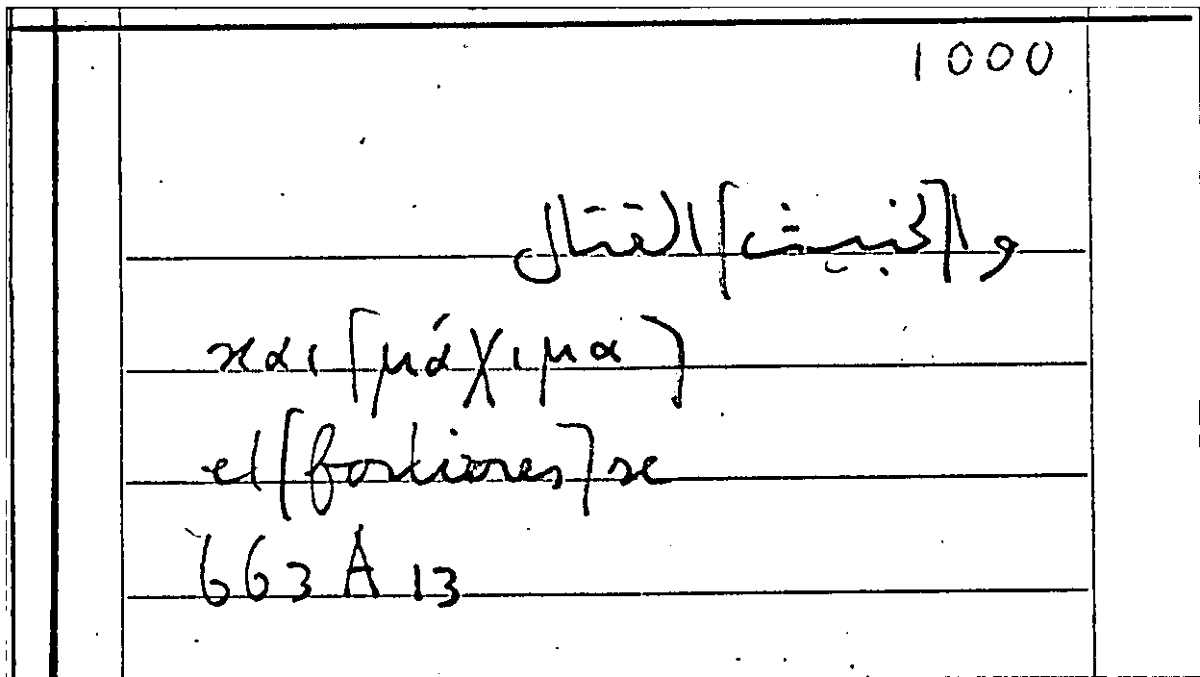 1000
و ا[لخبيث] القتال
και [μάχιμα]
et [fortiores] se
663 A 13